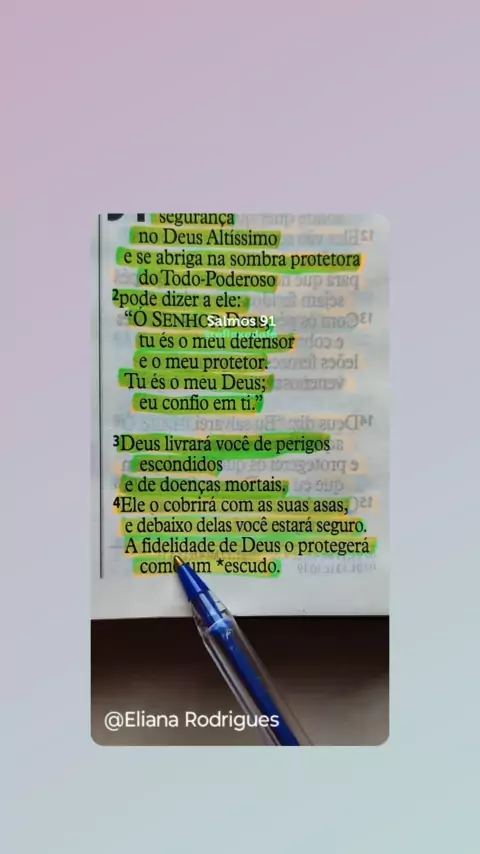 segurança
no Deus Altíssimo
e se abriga na sombra protetora
do Todo-Poderoso
2pode dizer a ele:
“Ó SENHOR
Salmos 91
tu és o meu defensor
e o meu protetor.
Tu és o meu Deus;
eu confio em ti.”
3Deus livrará você de perigos
escondidos
e de doenças mortais.
4Ele o cobrirá com as suas asas,
e debaixo delas você estará seguro.
A fidelidade de Deus o protegerá
como um *escudo.
@Eliana Rodrigues